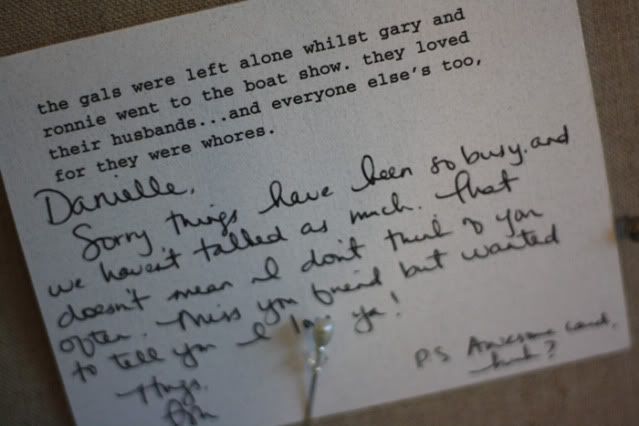 the gals were left alone whilst gary and
ronnie went to the boat show. they loved
their husbands...and everyone else's too,
for they were whores.
Danielle,
Sorry things have been so busy and
we haven't talked as much. That
doesn't mean I don't think of you
often. Miss you friend but wanted
to tell you I ya!
Hugs,
P.S Awesome card,
huh?